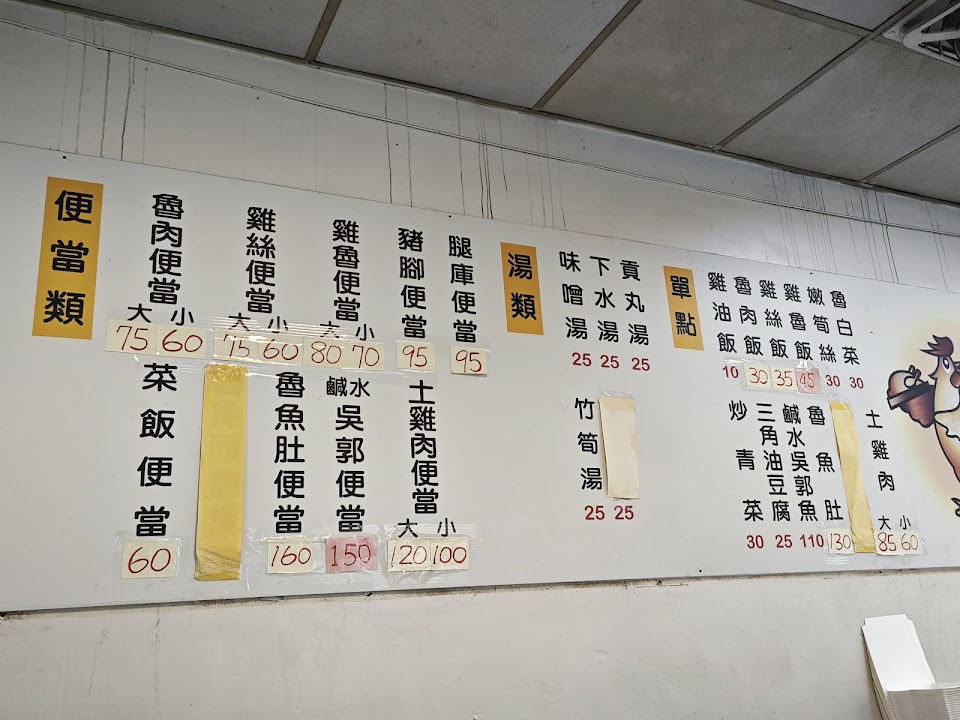 便當類
魯肉便當
大 小
75 60
雞絲便當
大 小
75 60
雞魯便當
大 小
80 70
豬腳便當
95
腿庫便當
95
菜飯便當
60
魯魚肚便當
160
鹹水吳郭便當
150
土雞肉便當
大 小
120 100
湯類
味噌湯
25
下水湯
25
貢丸湯
25
竹筍湯
25
25
單點
雞油飯
10
魯肉飯
30
雞絲飯
35
雞魯飯
45
嫩筍絲
30
魯白菜
30
炒青菜
30
三角油豆腐
25
鹹水吳郭魚
110
魯魚肚
130
土雞肉
大 小
85 60